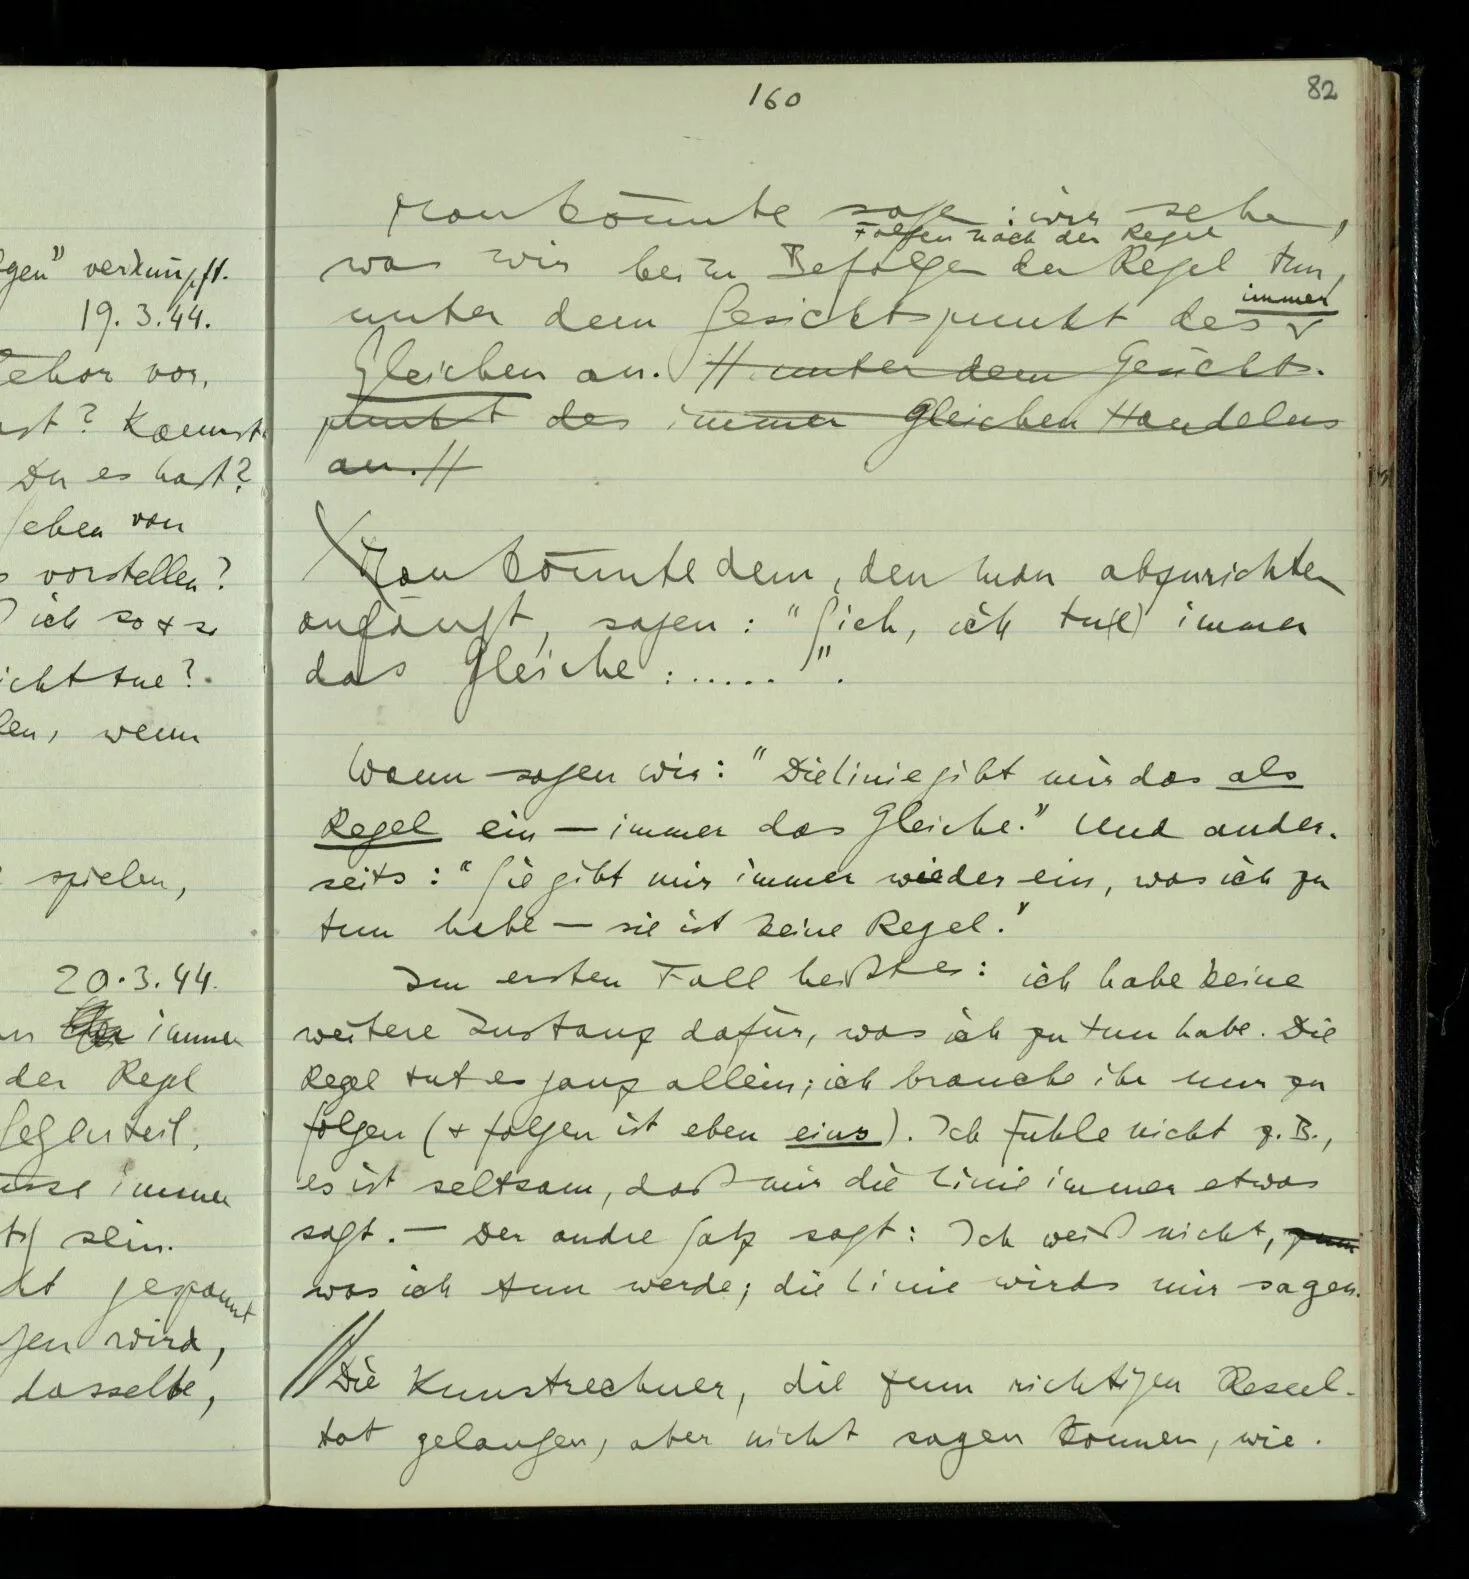 gen" verknüpft.
19.3.44.
vor,
st? Kannst
Du es hast?
geben von
vorstellen?
ich so + so
icht tue?
len, wenn
spielen,
20.3.44.
immer
der Regel
Gegenteil,
immer
sein.
gespannt
gen wird,
dasselbe,
160
82
Man könnte sagen: wir sehen,
Folgen nach der Regel
was wir beim Befolgen der Regel tun,
immer
unter dem Gesichtspunkt des
Gleichen an. // unter dem Gesichts-
punkt des immer gleichen Handelns
an. //
Man könnte dem, den man abzurichten
anfängt, sagen: "Sieh, ich tu(e) immer
das Gleiche: ....."
Wann sagen wir: "Die Linie gibt mir das als
Regel ein — immer das Gleiche." Und ander-
seits: "Sie gibt mir immer wieder ein, was ich zu
tun habe — sie ist keine Regel."
Im ersten Fall heißt es: ich habe keine
weitere Instanz dafür, was ich zu tun habe. Die
Regel tut es ganz allein; ich brauche ihr nur zu
folgen (+ folgen ist eben eins). Ich fühle nicht z.B.,
es ist seltsam, daß mir die Linie immer etwas
sagt. — Der andre Satz sagt: Ich weiß nicht,
was ich tun werde; die Linie wirds mir sagen.
Die Kunstrechner, die zum richtigen Resul-
tat gelangen, aber nicht sagen können, wie.